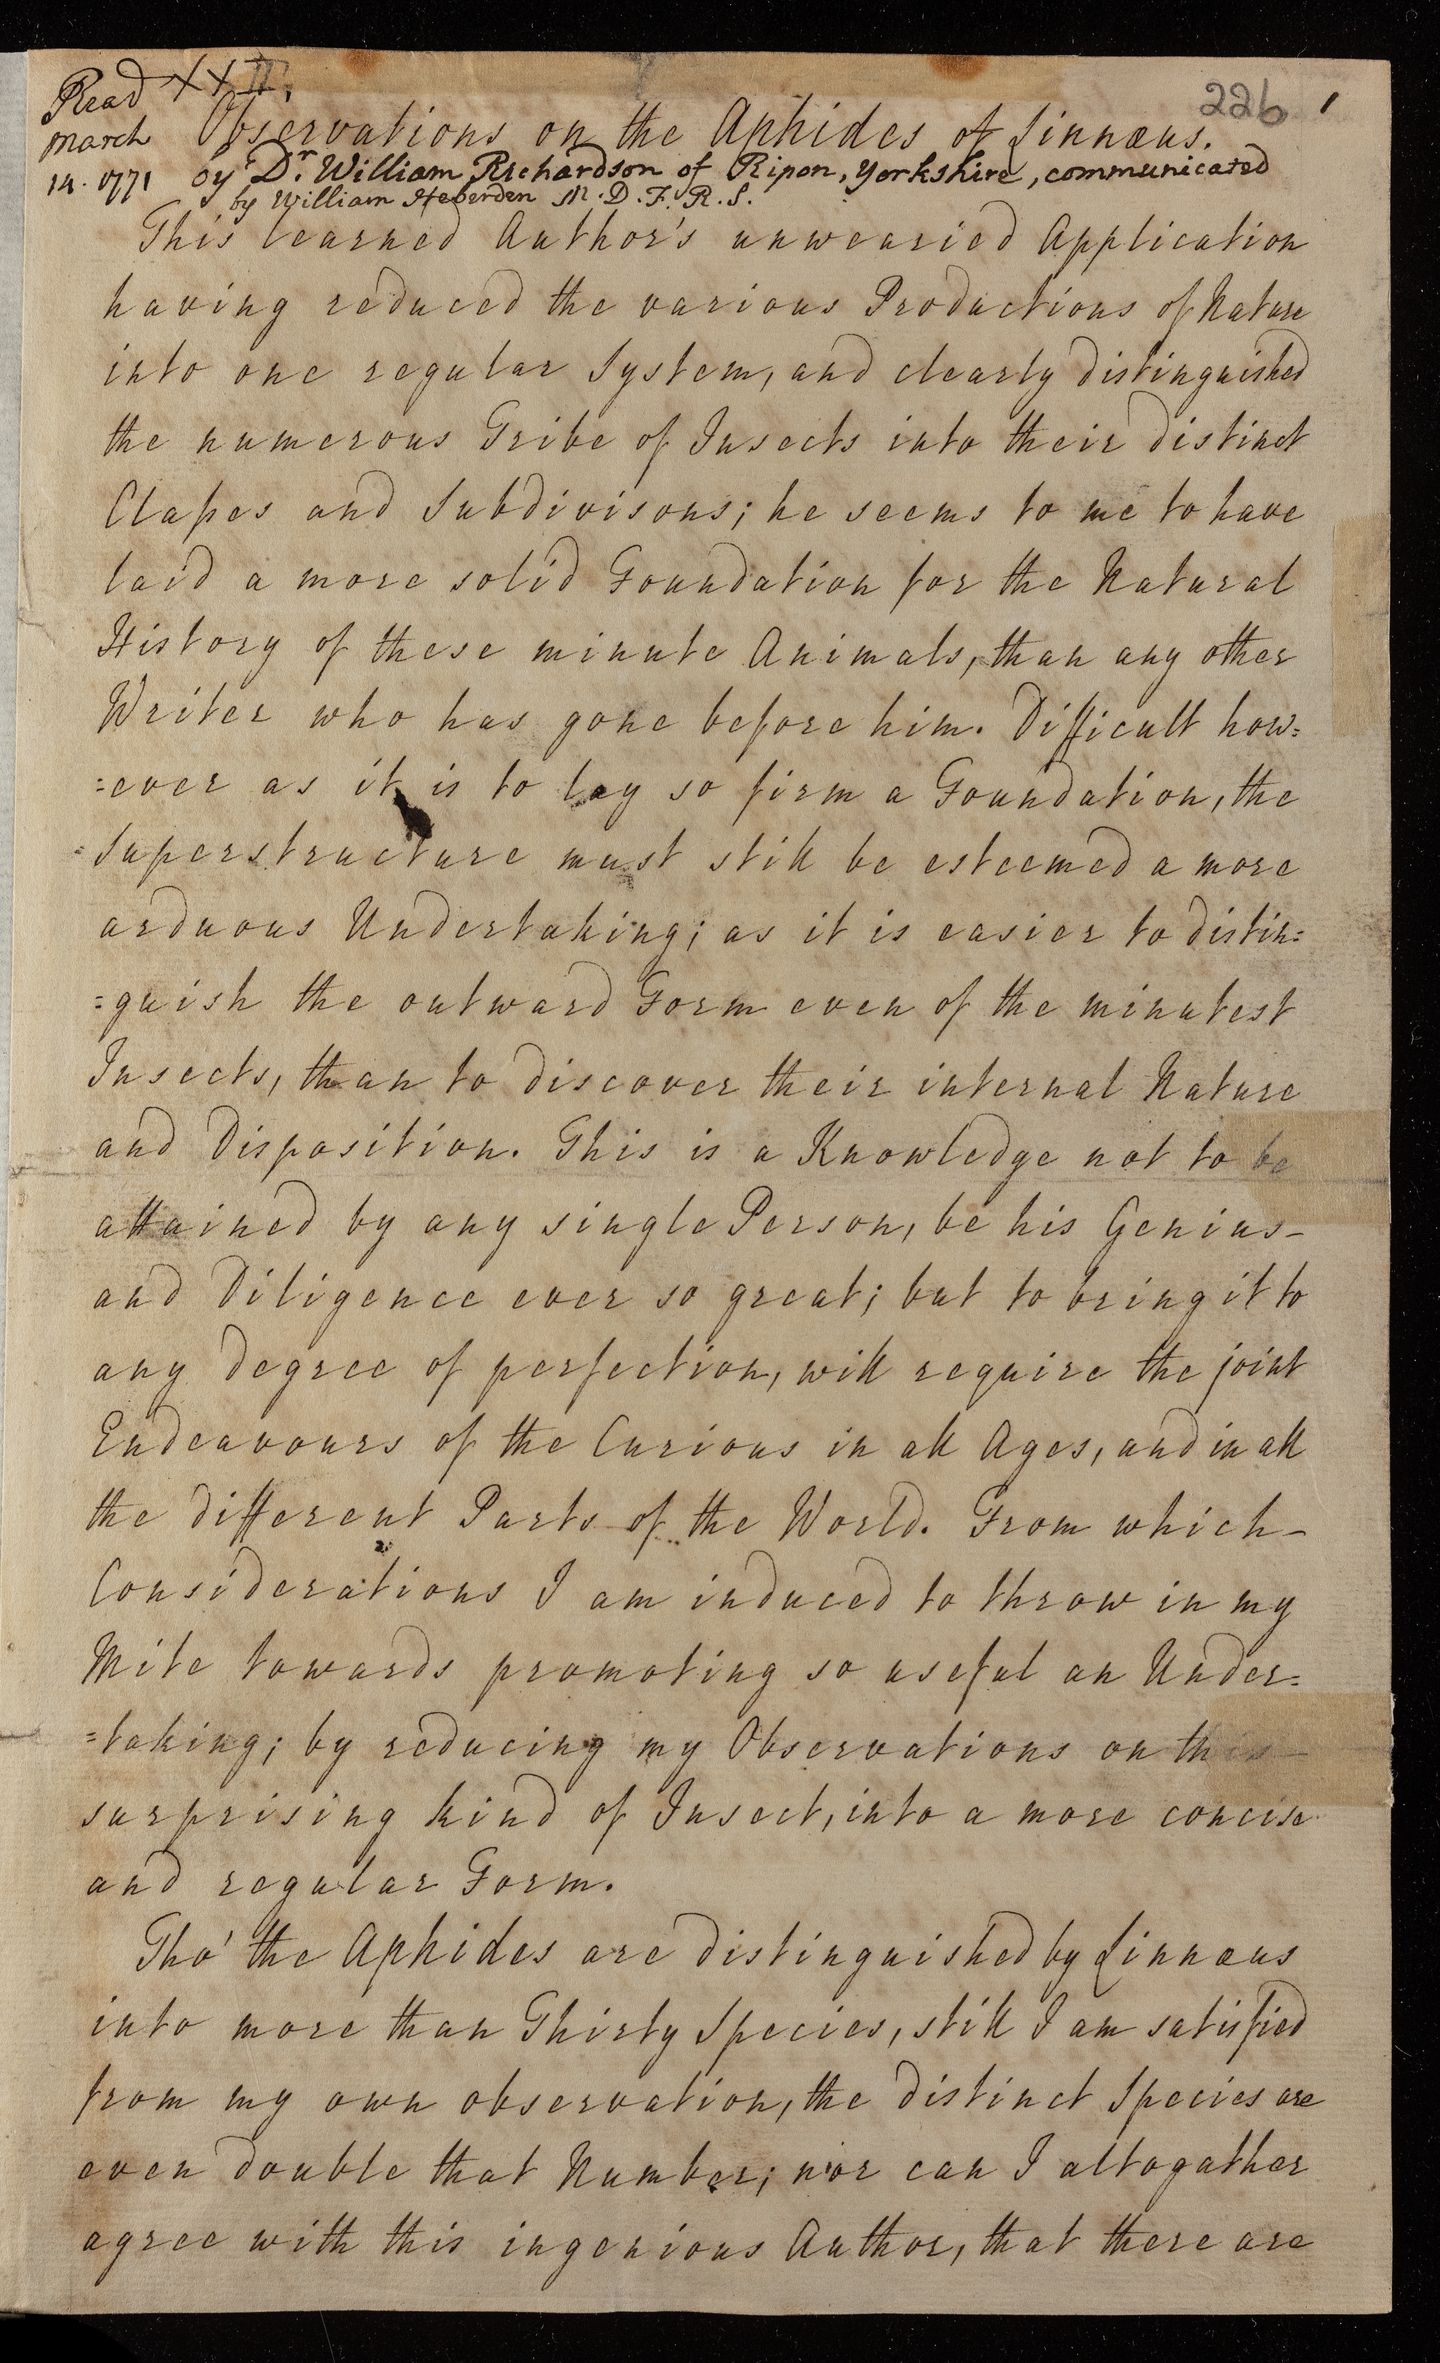 Read XXII,
March
14. 1771
226 1
Observations on the Aphides of Linnæus.
by Dr. William Richardson of Ripon, Yorkshire, communicated
by William Heberden M.D.F.R.S.
This learned Author's unwearied Application
having reduced the various Productions of Nature
into one regular System, and clearly distinguished
the numerous Tribe of Insects into their distinct
Classes and Subdivisons; he seems to me to have
laid a more solid Foundation for the Natural
History of these minute Animals, than any other
Writer who has gone before him. Difficult how=
=ever as it is to lay so firm a Foundation, the
=Superstructure must still be esteemed a more
arduous Undertaking; as it is easier to distin=
=guish the outward Form even of the minutest
Insects, than to discover their internal Nature
and Disposition. This is a Knowledge not to be
attained by any single Person, be his Genius-
and Diligence ever so great; but to bring it to
any degree of perfection, will require the joint
Endeavours of the Curious in all Ages, and in all
the different Parts of the World. From which-
Considerations I am induced to throw in my
Mite towards promoting so useful an Under=
=taking; by reducing my Observations on this-
surprising kind of Insect, into a more concise
and regular Form.
Tho' the Aphides are distinguished by Linnæus
into more than Thirty Species, still I am satisfied
from my own observation, the distinct Species are
even double that Number; nor can I altogather
agree with this ingenious Author, that there are